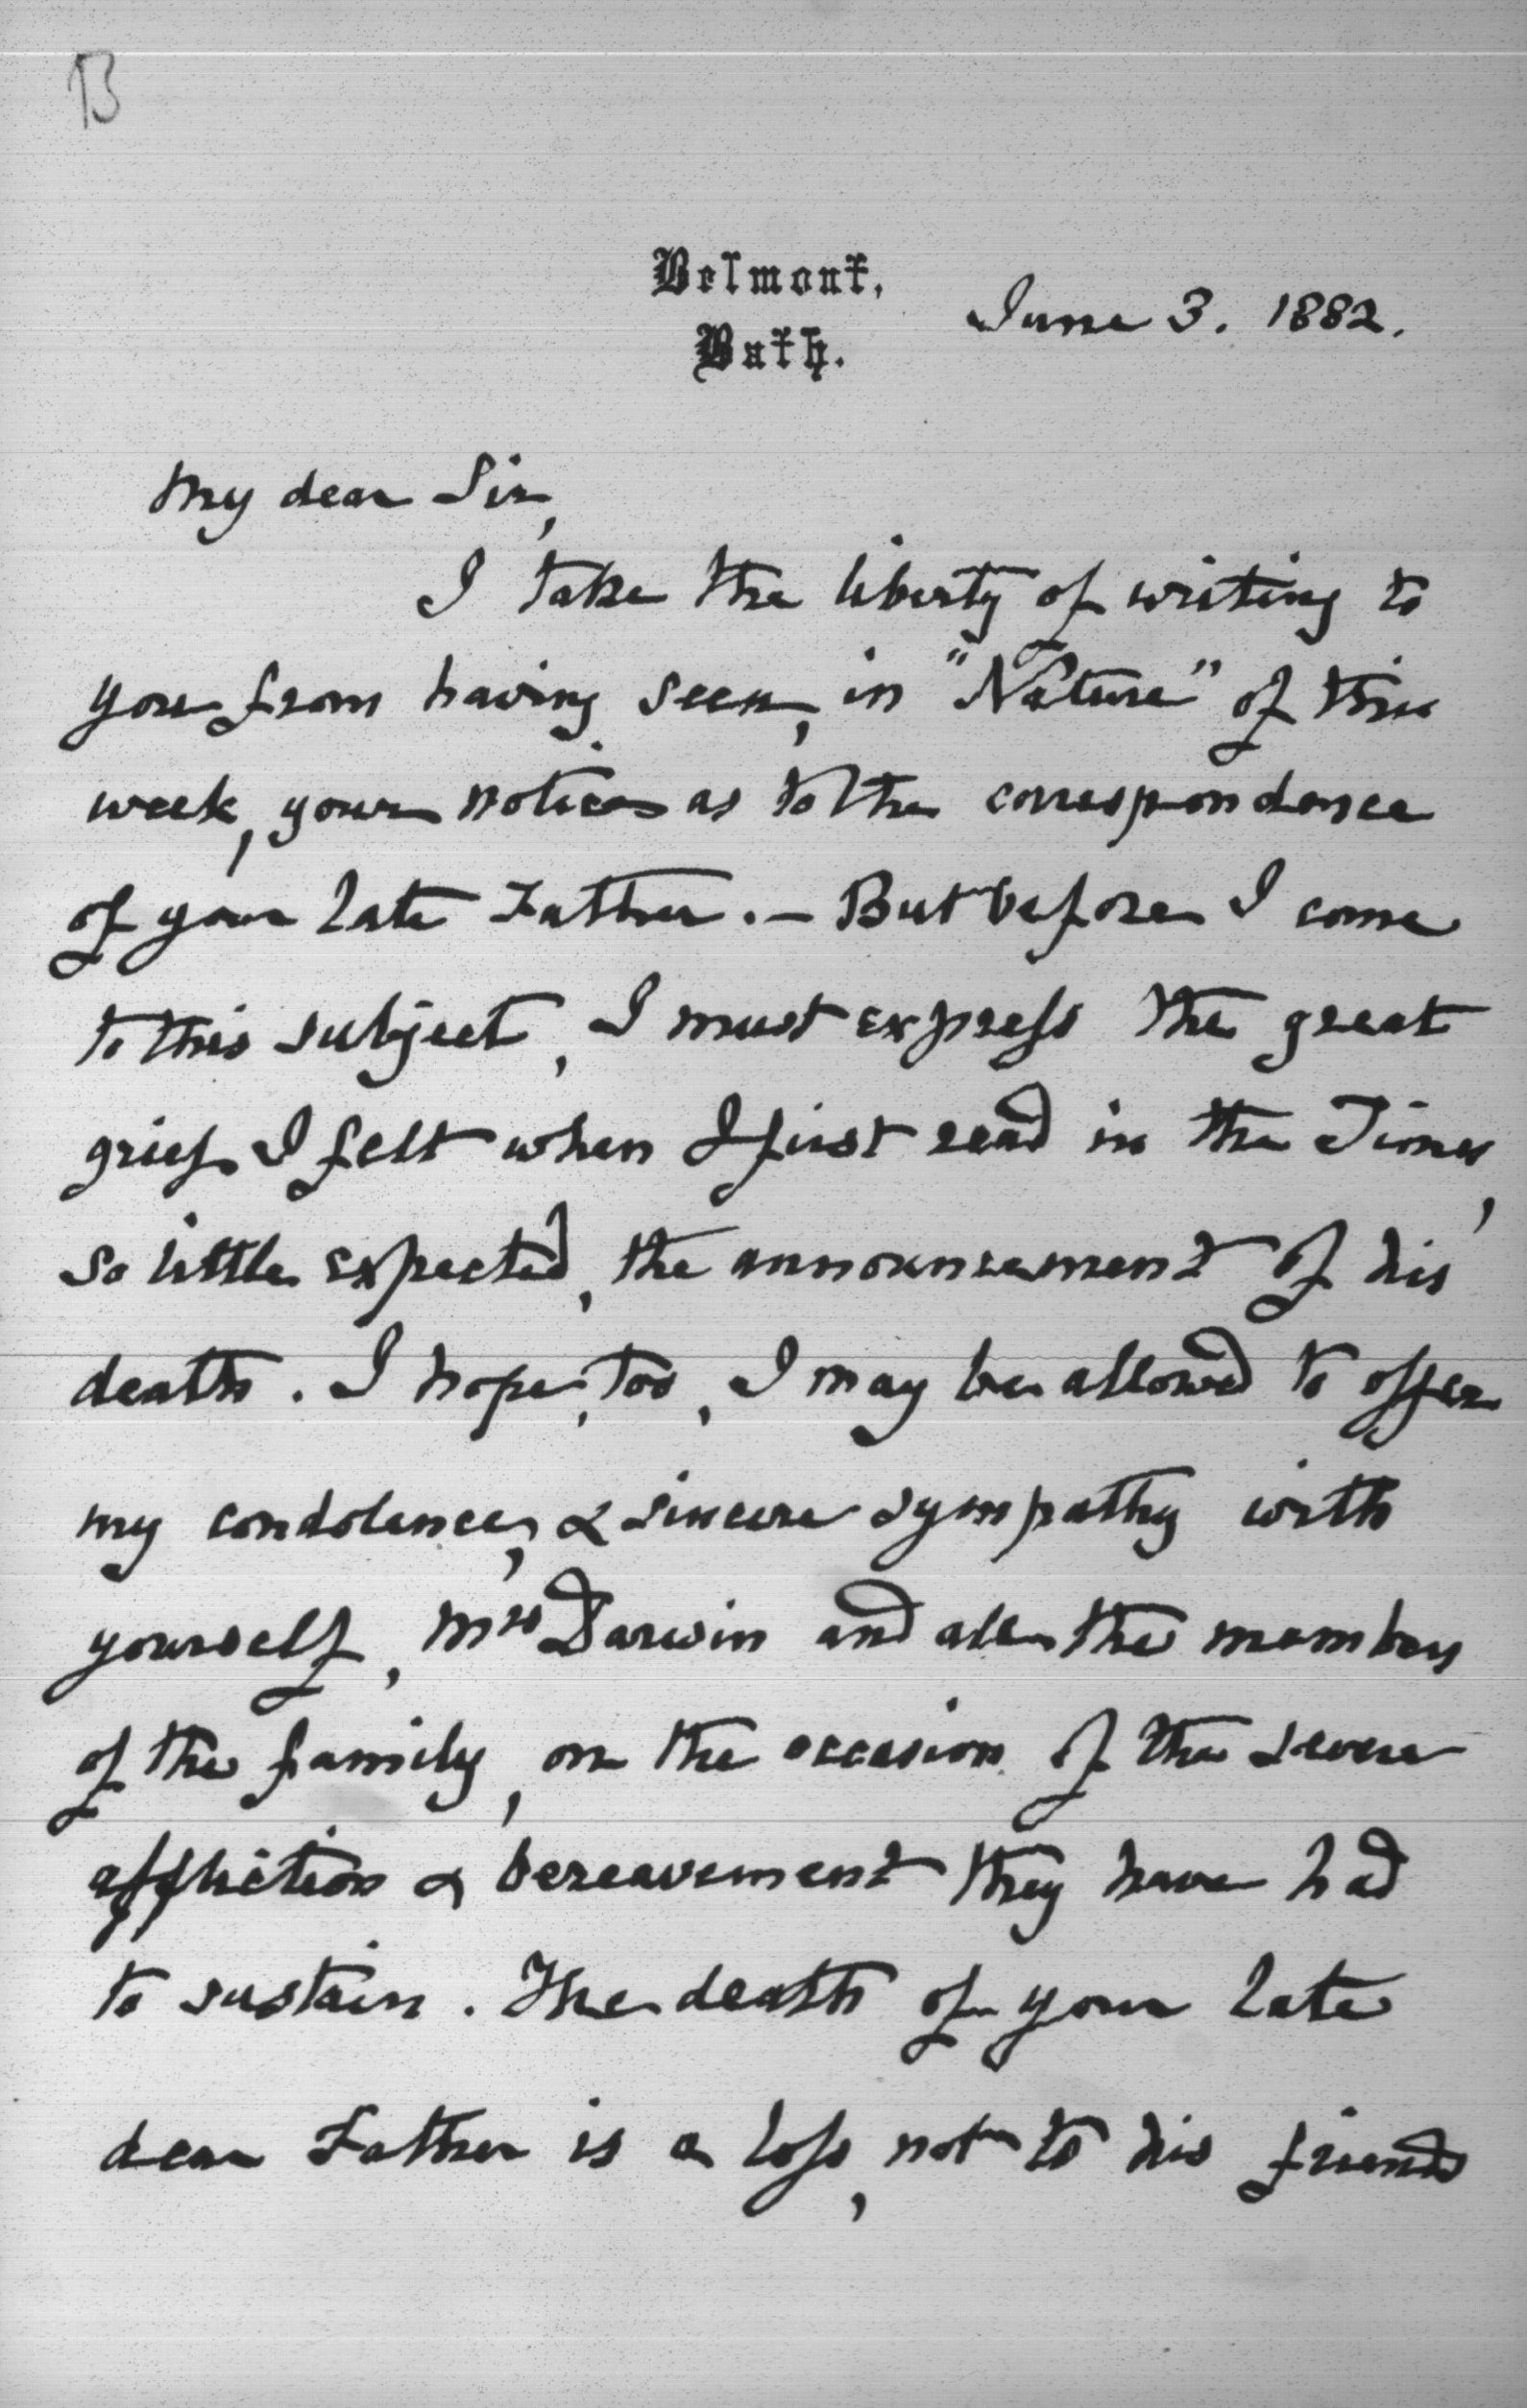 B
Belmont,
Bath.
June 3. 1882.
My dear Sir,
I take the liberty of writing to
you from having seen, in "Nature" of this
week, your notice as to the correspondence
of your late Father. — But before I come
to this subject, I must express the great
grief I felt when I first read in the Times,
so little expected, the announcement of his
death. I hope, too, I may be allowed to offer
my condolence, & sincere sympathy with
yourself, Mrs Darwin and all the members
of the family, on the occasion of the severe
affliction & bereavement they have had
to sustain. The death of your late
dear Father is a loss, not to his friends